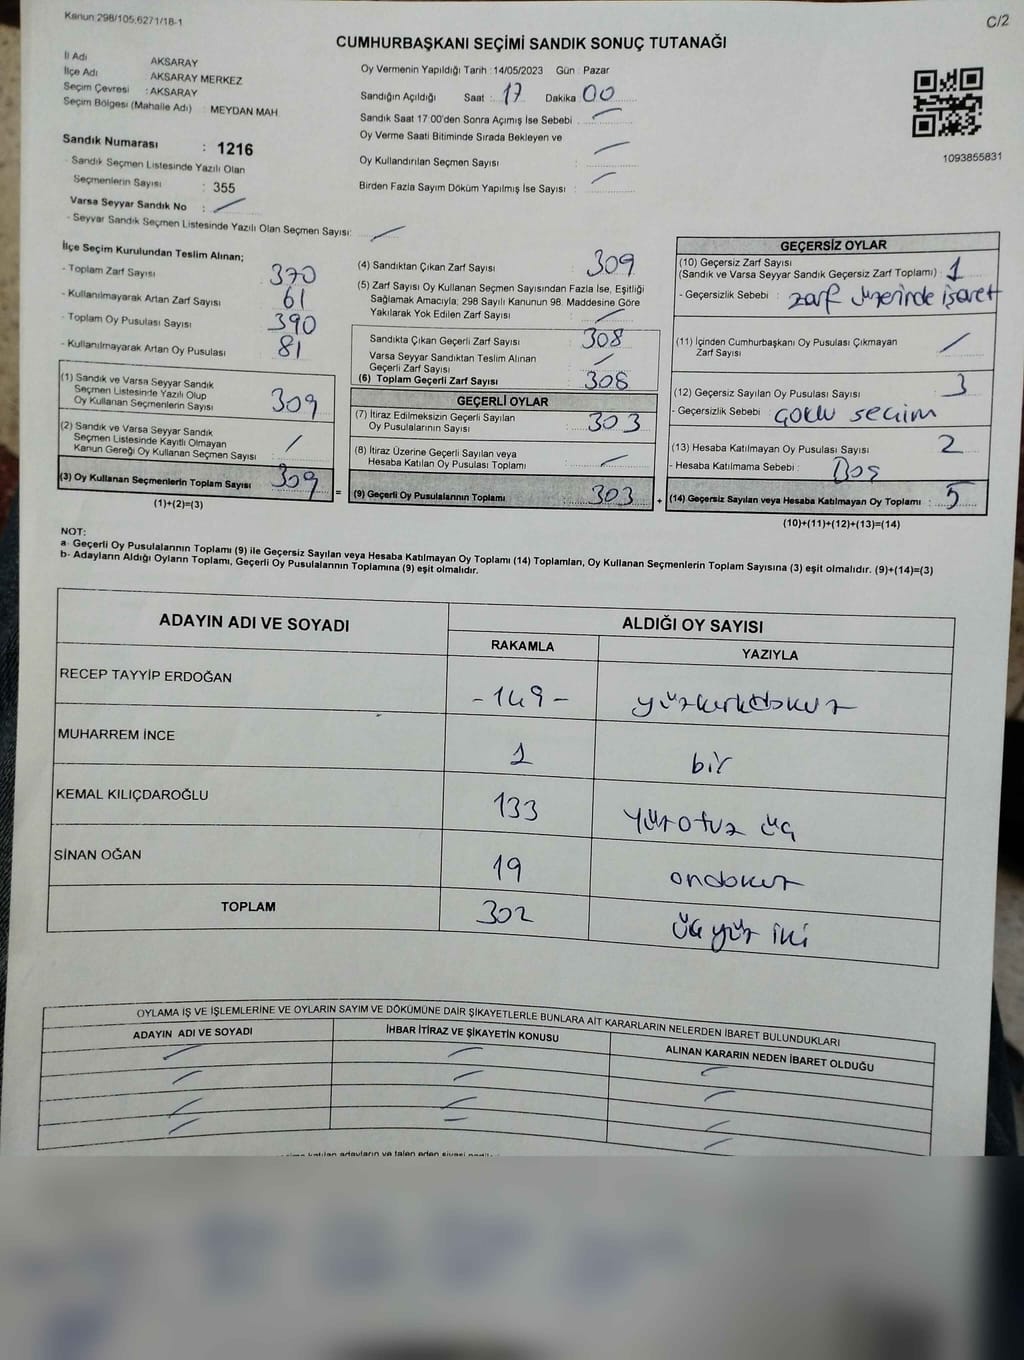 Kanun 298/105,6271/18-1
C/2
CUMHURBAŞKANI SEÇİMİ SANDIK SONUÇ TUTANAĞI
İl Adı AKSARAY
İlçe Adı AKSARAY MERKEZ
Seçim Çevresi : AKSARAY
Seçim Bölgesi (Mahalle Adı) : MEYDAN MAH
Oy Vermenin Yapıldığı Tarih :14/05/2023 Gün : Pazar
Sandığın Açıldığı Saat : 17 Dakika 00
Sandık Saat 17:00'den Sonra Açımış İse Sebebi :
Oy Verme Saati Bitiminde Sırada Bekleyen ve
Oy Kullandırılan Seçmen Sayısı :
Birden Fazla Sayım Döküm Yapılmış İse Sayısı :
1093855831
Sandık Numarası : 1216
- Sandık Seçmen Listesinde Yazılı Olan
Seçmenlerin Sayısı : 355
Varsa Seyyar Sandık No :
- Seyyar Sandık Seçmen Listesinde Yazılı Olan Seçmen Sayısı:
İlçe Seçim Kurulundan Teslim Alınan;
- Toplam Zarf Sayısı : 370
- Kullanılmayarak Artan Zarf Sayısı : 61
- Toplam Oy Pusulası Sayısı : 390
- Kullanılmayarak Artan Oy Pusulası : 81
(1) Sandık ve Varsa Seyyar Sandık
Seçmen Listesinde Yazılı Olup
Oy Kullanan Seçmenlerin Sayısı : 309
(2) Sandık ve Varsa Seyyar Sandık
Seçmen Listesinde Kayıtlı Olmayan
Kanun Gereği Oy Kullanan Seçmen Sayısı :
(3) Oy Kullanan Seçmenlerin Toplam Sayısı : 309
(1)+(2)=(3)
=
(4) Sandıktan Çıkan Zarf Sayısı : 309
(5) Zarf Sayısı Oy Kullanan Seçmen Sayısından Fazla İse, Eşitliği
Sağlamak Amacıyla; 298 Sayılı Kanunun 98. Maddesine Göre
Yakılarak Yok Edilen Zarf Sayısı :
Sandıkta Çıkan Geçerli Zarf Sayısı : 308
Varsa Seyyar Sandıktan Teslim Alınan
Geçerli Zarf Sayısı :
(6) Toplam Geçerli Zarf Sayısı : 308
GEÇERLİ OYLAR
(7) İtiraz Edilmeksizin Geçerli Sayılan
Oy Pusulalarının Sayısı : 303
(8) İtiraz Üzerine Geçerli Sayılan veya
Hesaba Katılan Oy Pusulası Toplamı :
(9) Geçerli Oy Pusulalarının Toplamı : 303
+
GEÇERSİZ OYLAR
(10) Geçersiz Zarf Sayısı
(Sandık ve Varsa Seyyar Sandık Geçersiz Zarf Toplamı) : 1
- Geçersizlik Sebebi : zarf üzerinde işaret
(11) İçinden Cumhurbaşkanı Oy Pusulası Çıkmayan
Zarf Sayısı :
(12) Geçersiz Sayılan Oy Pusulası Sayısı : 3
- Geçersizlik Sebebi : çoklu seçim
(13) Hesaba Katılmayan Oy Pusulası Sayısı : 2
- Hesaba Katılmama Sebebi : Boş
(14) Geçersiz Sayılan veya Hesaba Katılmayan Oy Toplamı : 5
(10)+(11)+(12)+(13)=(14)
NOT:
a- Geçerli Oy Pusulalarının Toplamı (9) ile Geçersiz Sayılan veya Hesaba Katılmayan Oy Toplamı (14) Toplamları, Oy Kullanan Seçmenlerin Toplam Sayısına (3) eşit olmalıdır. (9)+(14)=(3)
b- Adayların Aldığı Oyların Toplamı, Geçerli Oy Pusulalarının Toplamına (9) eşit olmalıdır.
ADAYIN ADI VE SOYADI ALDIĞI OY SAYISI
RAKAMLA YAZIYLA
RECEP TAYYİP ERDOĞAN -149- yüzkırkdokuz
MUHARREM İNCE 1 bir
KEMAL KILIÇDAROĞLU 133 Yüzotuz üç
SİNAN OĞAN 19 ondokuz
TOPLAM 302 üç yüz iki
OYLAMA İŞ VE İŞLEMLERİNE VE OYLARIN SAYIM VE DÖKÜMÜNE DAİR ŞİKAYETLERLE BUNLARA AİT KARARLARIN NELERDEN İBARET BULUNDUKLARI
ADAYIN ADI VE SOYADI İHBAR İTİRAZ VE ŞİKAYETİN KONUSU ALINAN KARARIN NEDEN İBARET OLDUĞU